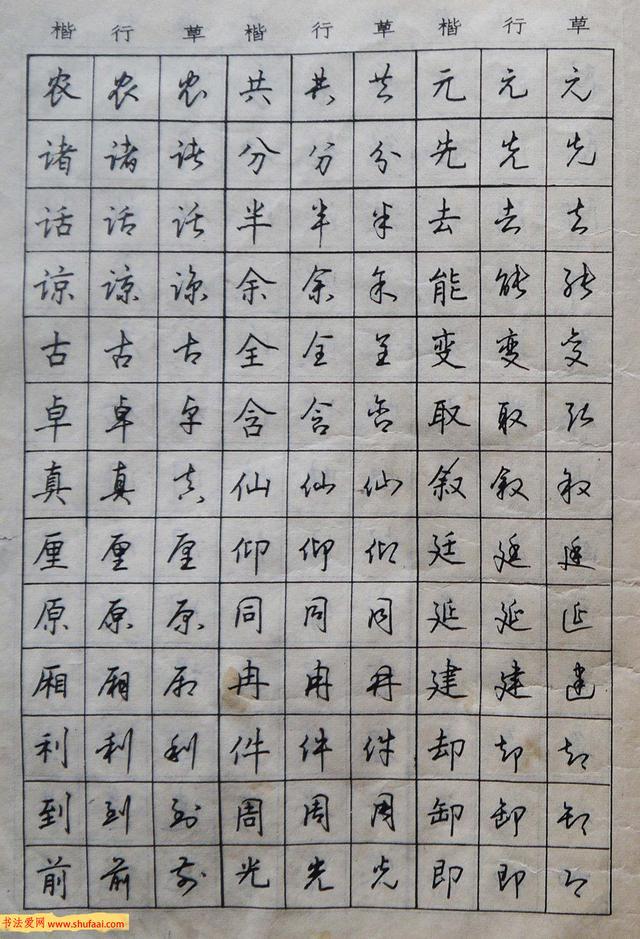 楷 行 草 楷 行 草 楷 行 草
农 农 农 共 共 共 元 元 元
诸 诸 诸 分 分 分 先 先 先
话 话 话 半 半 半 去 去 去
谅 谅 谅 余 余 余 能 能 能
古 古 古 全 全 全 变 变 变
卓 卓 卓 含 含 含 取 取 取
真 真 真 仙 仙 仙 叙 叙 叙
厘 厘 厘 仰 仰 仰 廷 廷 廷
原 原 原 同 同 同 延 延 延
厢 厢 厢 冉 冉 冉 建 建 建
利 利 利 件 件 件 却 却 却
到 到 到 周 周 周 卸 卸 卸
前 前 前 光 光 光 即 即 即
书法爱网 www.shufaai.com